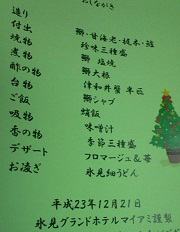 おしながき
造り 鰤・甘海老・梶木・烏賊
付出 珍味三種盛
焼物 鰤 塩焼
煮物 鰤大根
酢の物 津和井蟹 半匹
台物 鰤シャブ
ご飯 蛸飯
吸物 味噌汁
香の物 季節三種盛
デザート フロマージュ&苺
お凌ぎ 氷見細うどん
平成23年12月21日
氷見グランドホテルマイアミ謹製